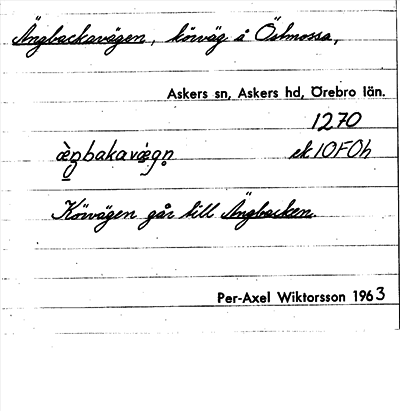 Ängbackavägen, körväg å Östmossa,
Askers sn, Askers hd, Örebro län.
1270
æ̀ŋbakavæ̀gn̥ ek 10F0h
Körvägen går till Ängbacken.
Per-Axel Wiktorsson 1963